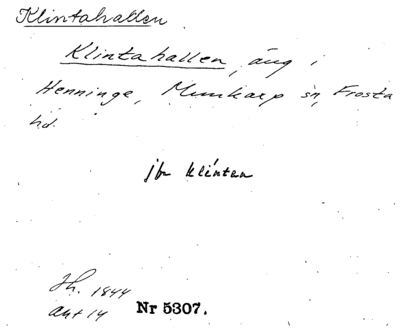 Klintahallen
Klintahallen, äng i
Henninge, Munkarp sn, Frosta
hd.
jfr klinten
Jh. 1844
akt 14 Nr 5307.